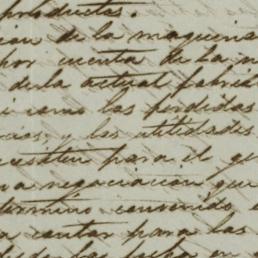 productos.
cion de la maquina
por cuenta de la n
de la actual fabri
i como las perdidas
cios, y las utilidades
resulten para el q
na negociacion que
termino convenido
a contar para las
desde la fecha en